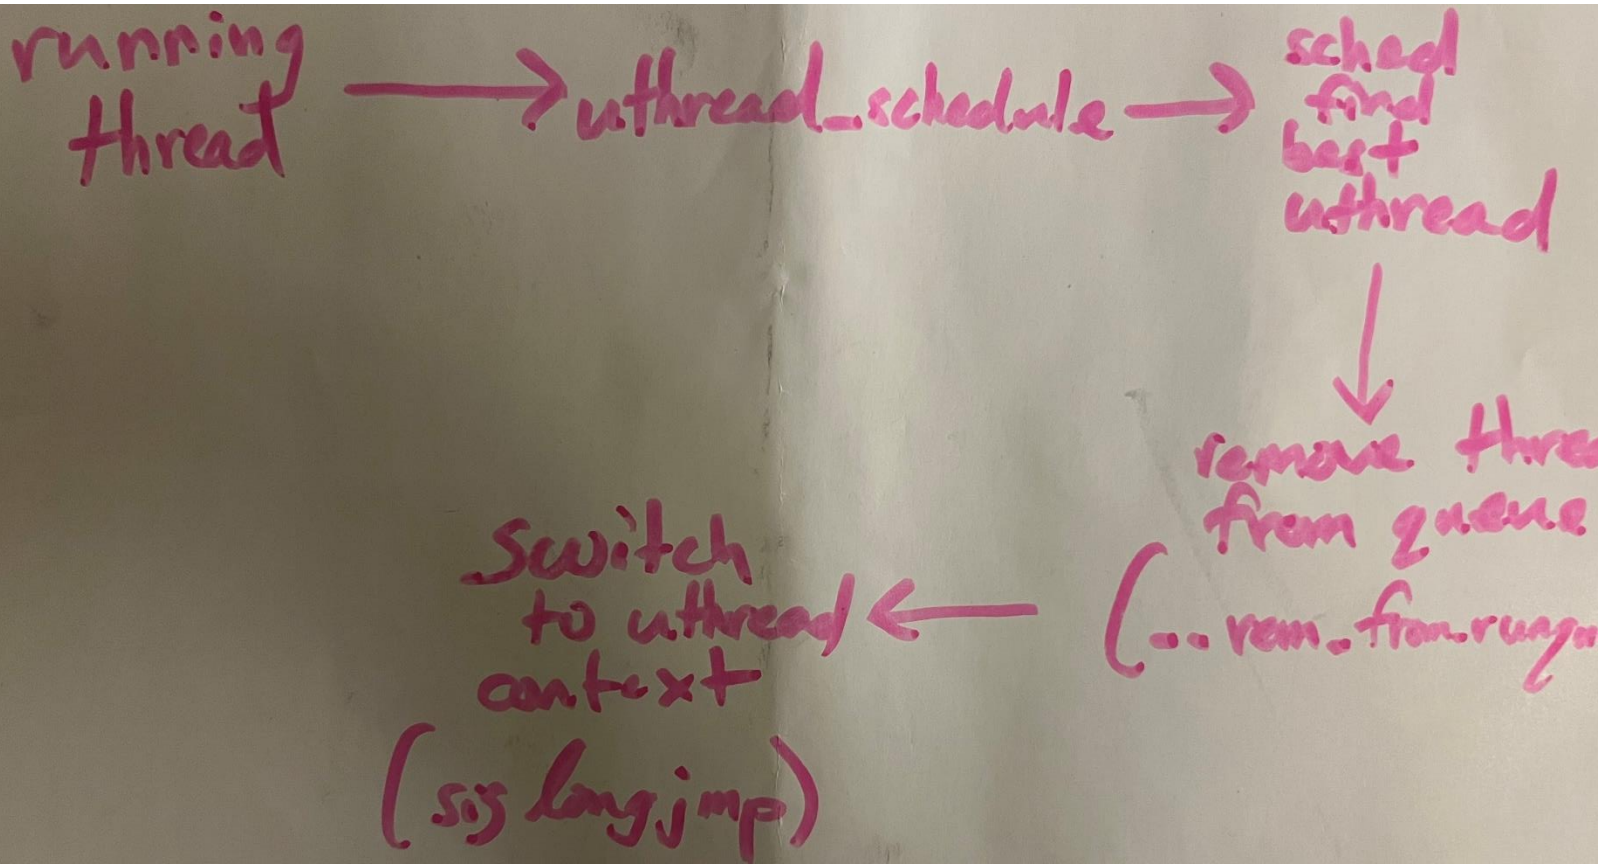 running
thread
uthread_schedule
sched
find
best
uthread
remove threa
from queue
(... rem_from_runqu
switch
to uthread
context
(siglongjmp)